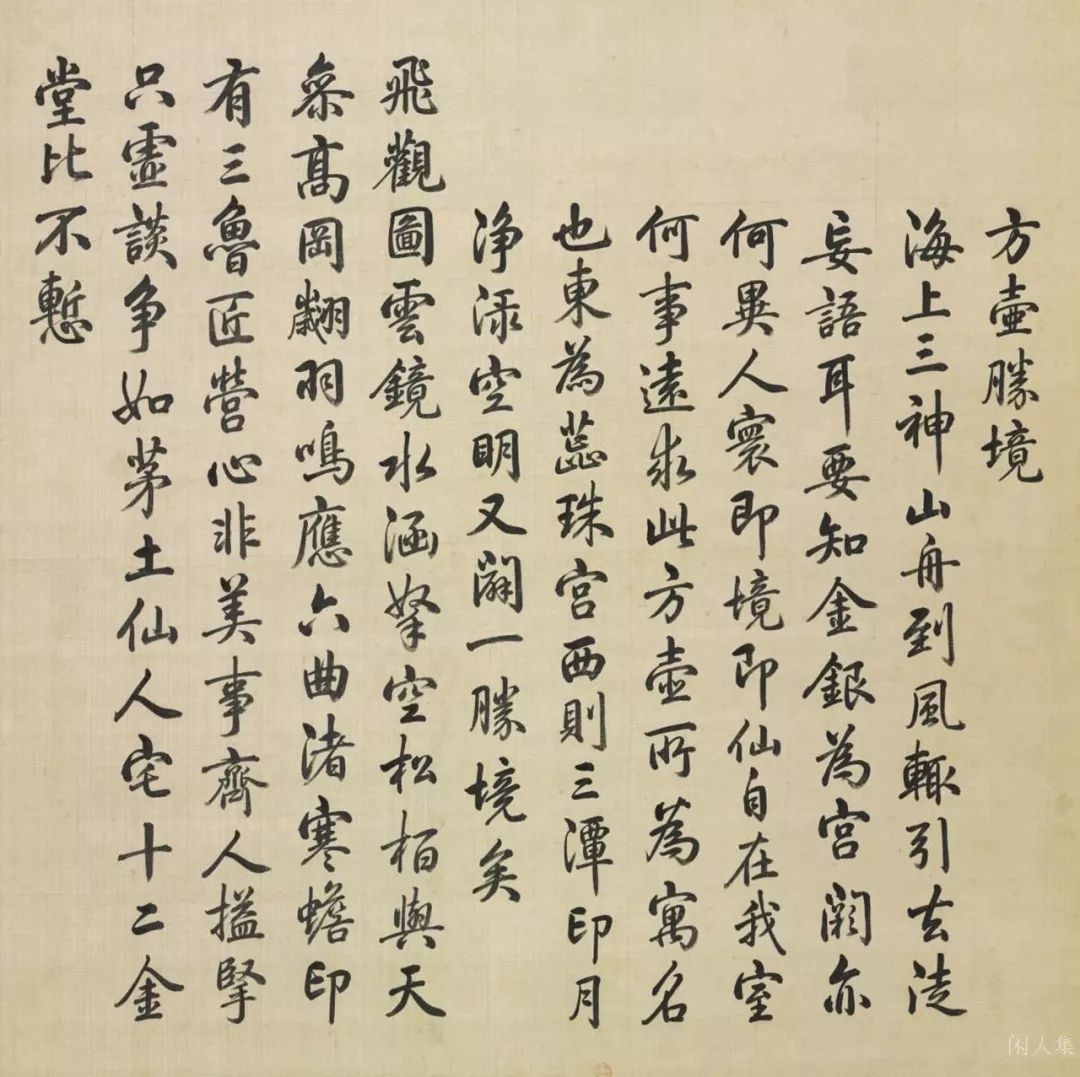 方壺勝境
海上三神山舟到風輒引去徒
妄語耳要知金銀為宮闕亦
何異人寰即境即仙自在我室
何事遠求此方壺所為寓名
也東為蕊珠宮西則三潭印月
淨淥空明又闢一勝境矣
飛觀圖雲鏡水涵拏空松栢與天
參高岡翽羽鳴應六曲渚寒蟾印
有三魯匠營心非美事齊人搤掔
只虛談爭如茅土仙人宅十二金
堂比不慙
闲人集